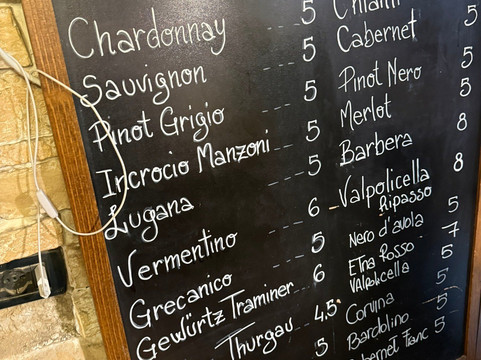 Chardonnay --- 5
Sauvignon --- 5
Pinot Grigio --- 5
Incrocio Manzoni --- 5
Lugana --- 5
Vermentino --- 6
Grecanico --- 5
Gewürtz Traminer -- 6
Thurgau -- 4,5
5
Chianti
Cabernet 5
Pinot Nero 5
Merlot 5
Barbera 8
Valpolicella
Ripasso 8
Nero d'avola 5
Etna Rosso 7
Valpolicella 5
Corvina 5
Bardolino 5
Cabernet Franc 5